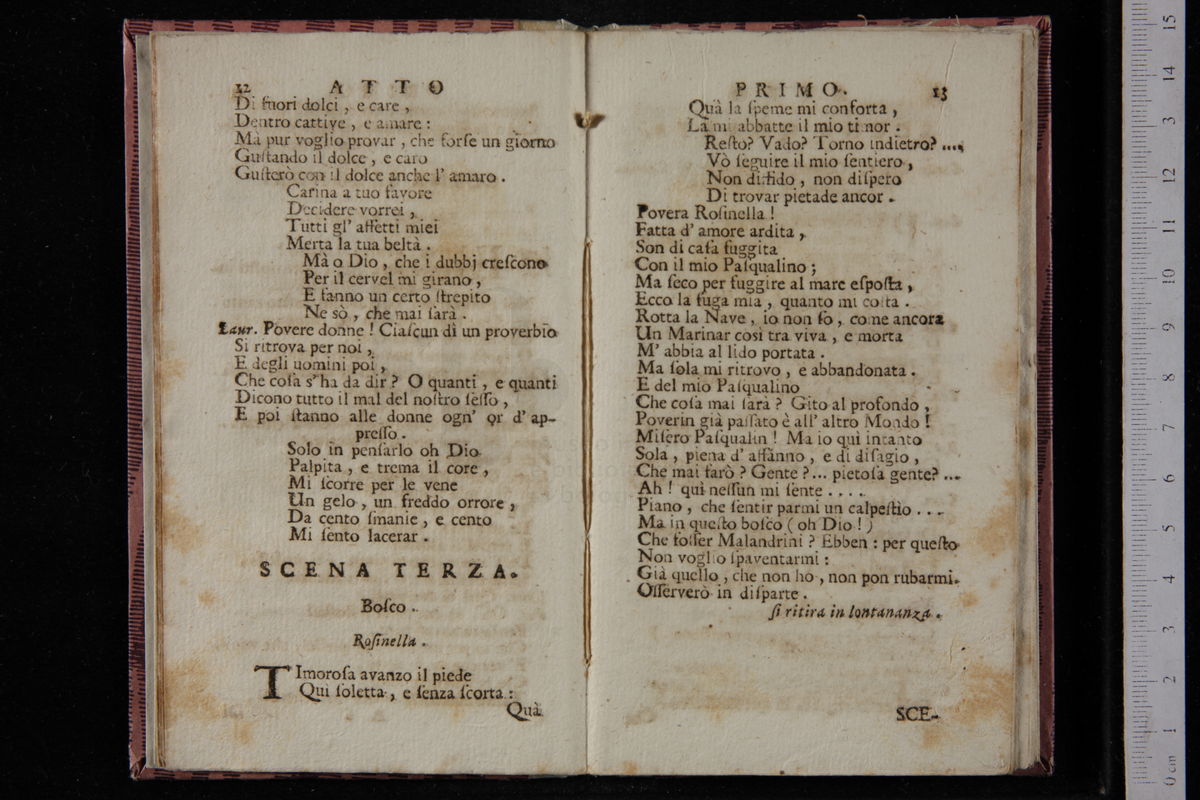 12 ATTO
Di fuori dolci, e care,
Dentro cattive, e amare:
Mà pur voglio provar, che forse un giorno
Gustando il dolce, e caro
Gusterò con il dolce anche l' amaro.
Carina a tuo favore
Decidere vorrei,
Tutti gl' affetti miei
Merta la tua beltà.
Mà o Dio, che i dubbj crescono
Per il cervel mi girano,
E fanno un certo strepito
Ne sò, che mai sarà.
Laur. Povere donne! Ciascun dì un proverbio
Si ritrova per noi,
E degli uomini poi,
Che cosa s' ha da dir? O quanti, e quanti
Dicono tutto il mal del nostro sesso,
E poi stanno alle donne ogn' or d' ap-
presso.
Solo in pensarlo oh Dio
Palpita, e trema il core,
Mi scorre per le vene
Un gelo, un freddo orrore,
Da cento smanie, e cento
Mi sento lacerar.
SCENA TERZA.
Bosco.
Rosinella.
TImorosa avanzo il piede
Qui soletta, e senza scorta:
Quà
PRIMO. 13
Quà la speme mi conforta,
Là mi abbatte il mio timor.
Resto? Vado? Torno indietro? ....
Vò seguire il mio sentiero,
Non diffido, non dispero
Di trovar pietade ancor.
Povera Rosinella!
Fatta d' amore ardita,
Son di casa fuggita
Con il mio Pasqualino;
Ma seco per fuggire al mare esposta,
Ecco la fuga mia, quanto mi costa.
Rotta la Nave, io non so, come ancora
Un Marinar così tra viva, e morta
M' abbia al lido portata.
Ma sola mi ritrovo, e abbandonata.
E del mio Pasqualino
Che cosa mai sarà? Gito al profondo,
Poverin già passato è all' altro Mondo!
Misero Pasqualin! Ma io quì intanto
Sola, piena d' affanno, e di disagio,
Che mai farò? Gente?... pietosa gente? ...
Ah! quì nessun mi sente ....
Piano, che sentir parmi un calpestìo ...
Ma in questo bosco (oh Dio!)
Che fosser Malandrini? Ebben: per questo
Non voglio spaventarmi:
Già quello, che non hò, non pon rubarmi.
Osserverò in disparte.
si ritira in lontananza.
SCE-